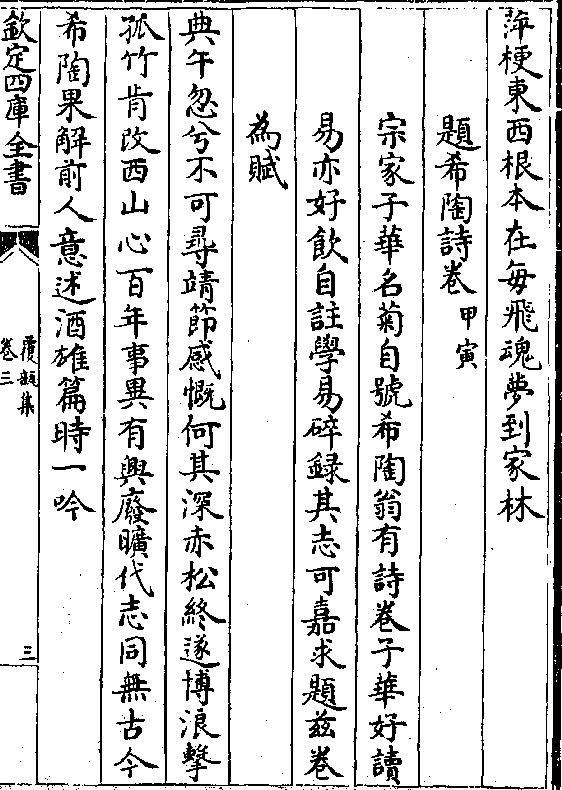 萍梗東西根本在每飛魂夢到家林
題希陶詩卷甲寅
宗家子華名菊自號希陶翁有詩卷子華好讀
易亦好飲自註學易碎録其志可嘉求題兹卷
為賦
典午忽兮不可尋靖節感慨何其深赤松終遂博浪擊
孤竹肯改西山心百年事異有興廢曠代志同無古今
希陶果解前人意述酒雄篇時一吟
欽定四庫全書
覆瓿集
卷三
三